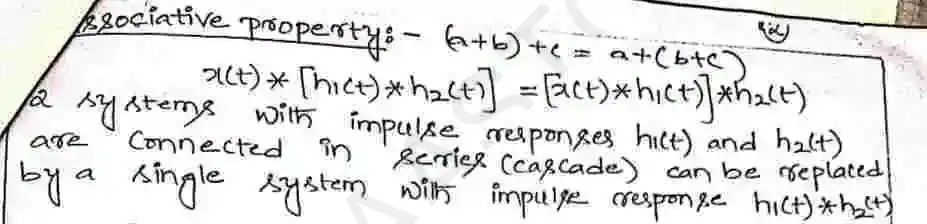 Associative property:- (a+b)+c = a+(b+c)
x(t) * [h1(t) * h2(t)] = [x(t) * h1(t)] * h2(t)
2 systems with impulse responses h1(t) and h2(t)
are connected in series (cascade) can be replaced
by a single system with impulse response h1(t) * h2(t)